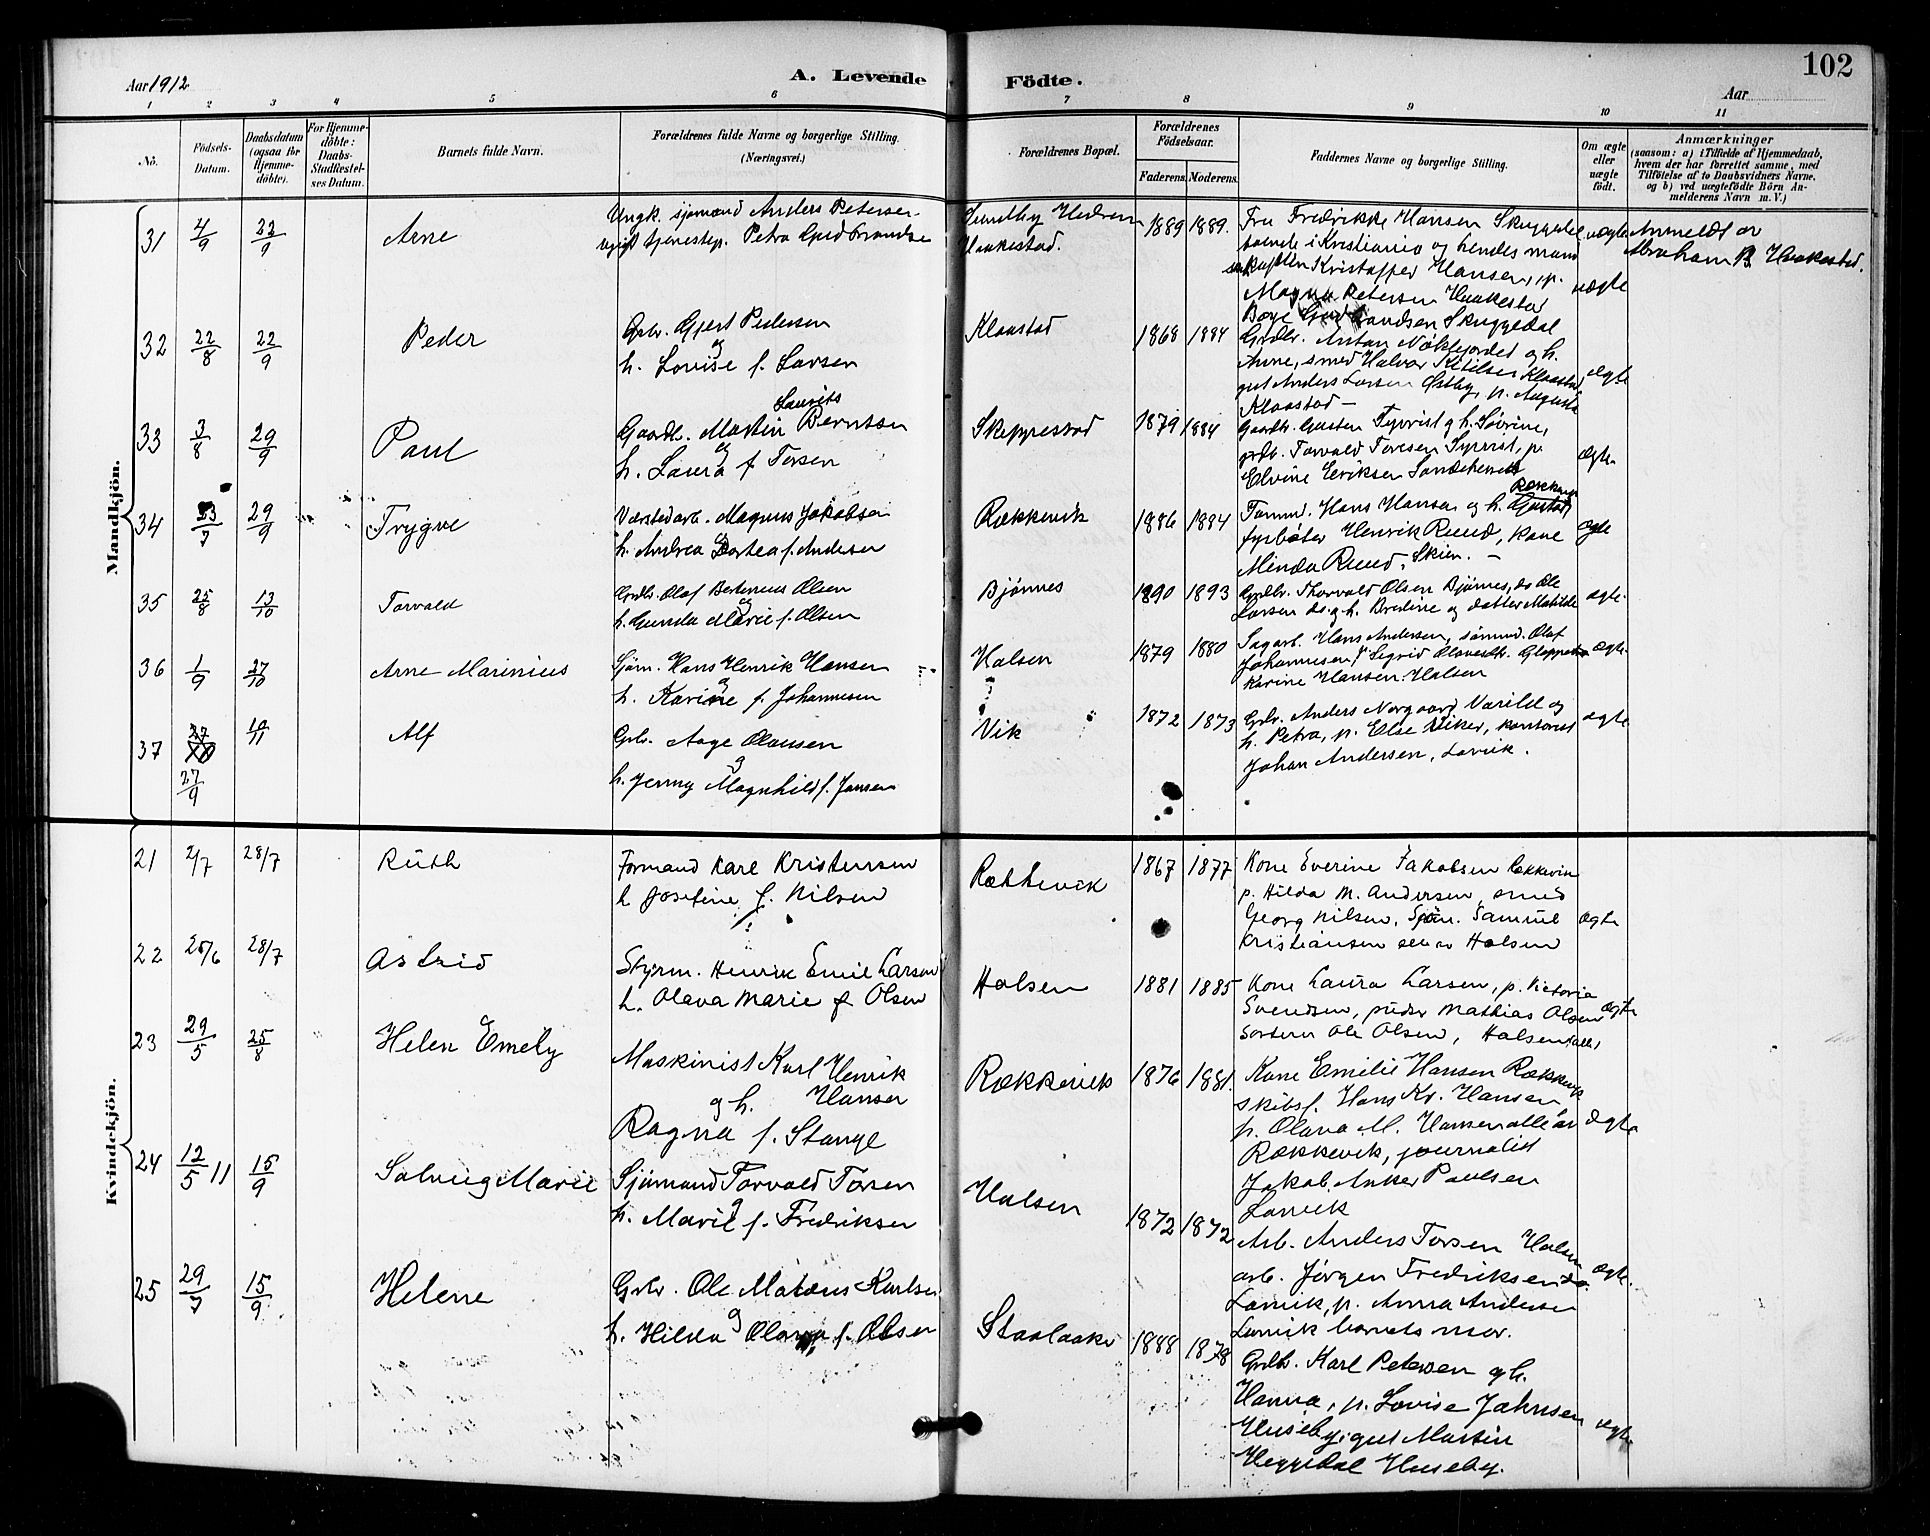 102
Aar 1912
A. Levende
Födte.
Aar
1 2 3 4 5 6 7 8 9 10 11
No.
Födsels-Datum.
Daabsdatum (ogsaa for Hjemme-döbte).
For Hjemme-döbte: Daabs-Stadfæstel-ses Datum.
Barnets fulde Navn.
Forældrenes fulde Navne og borgerlige Stilling.
(Næringsvei.)
Forældrenes Bopæl.
Forældrenes Födselsaar.
Faderens. Moderens.
Faddernes Navne og borgerlige Stilling.
Om ægte eller uægte födt.
Anmærkninger
(saasom: a) i Tilfælde af Hjemmedaab,
hvem der har forrettet samme, med
Tilföielse af to Daabsvidners Navne.
og b) ved uægtefödte Börn An-
melderens Navn m. V.)
Mandkjön.
31 4/9 22/9 Arne
Ungk. sjømand Anders Petersen
Haakestad. 1889 1889.
Fru Fredrikke Hansen
i Kristiania og hendes mand
Kristoffer Hansen, p.
Magna Petersen Haakestad
uægte
Anmeldt av
Abraham B. Haakestad.
32 22/8 22/9 Peder
Grbr. Gjert Pedersen
og
h. Lovise f. Larsen
Klaastad 1868 1884
Grdbr. Anton og h.
Anne, smed Halvor Ketilsen Klaastad,
gut Anders Larsen Østby, p. Augusta
Klaastad
ægte
33 3/8 29/9 Paul
Laurits
Gaardb. Martin Berntsen
og
h. Laura f. Torsen
Skeppestad 1879 1884
Gaardb. og h. Severine,
grdb. Torvald Toresen
Elvine Eriksen
ægte
34 23/7 29/9 Trygve
Værstedarb. Magnus Jakobsen
h. Andrea Dortea f. Andersen
Rækkevik 1886 1884
Tømmd. Hans Hansen og h. Gustava
fyrbøter Henrik Ruud, kone
Minda Ruud, Skien.
ægte
35 25/8 13/10 Torvald
Grdbr. Olaf Bertinius Olsen
og
h. Gunda Marie f. Olsen
Bjønnes 1890 1893
Grdbr. Thorvald Olsen Bjønnes, do Ole
Larsen do. og h. Bredine og datter Matilde
ægte
36 1/9 27/10 Arne Marinius
Sjøm. Hans Henrik Hansen
og
h. Karine f. Johannesen
Halsen 1879 1880
Sagarb. Hans Andersen, sømnd. Olaf
Johannesen, Sigrid
Karine Hansen. Halsen
ægte
37 27/9 10/11 Alf
Grbr. Aage Olausen
og
h. Jenny Magnhild f. Jansen
Vik 1872 1873
Grbr. Anders Norgaard Varild og
h. Petra, p. Else Viker, kontorist
Johan Andersen, Larvik.
ægte
Kvindekjön.
21 2/7 28/7 Ruth
Formand Karl Kristensen
h Josefine f. Nilsen
Rækkevik 1867 1877
Kone Everine Jakobsen Rækkevik
p. Hilda M. Andersen, smed
Georg Nilsen, Sjøm. Samuel
Kristiansen alle av Halsen
ægte
22 25/6 28/7 Astrid
Styrm. Henrik Emil Larsen
h. Olava Marie f Olsen
Halsen 1881 1885
Kone Laura Larsen, p. Victoria
Svendsen, Mathias Olsen
Ole Olsen, Halsen (alle)
ægte
23 29/5 25/8 Helen Emely
Maskinist Karl Henrik
og h. Hansen
Ragna f. Stange
Rækkevik 1876 1881.
Kone Emilie Hansen Rækkevik
skibsf. Hans Kr. Hansen
p. Olava M. Hansen alle av
Rækkevik, journalist
Jakob Anker Paulsen
Larvik
ægte
24 12/5 11 15/9 Solveig Marie
Sjømand Torvald Torsen
og
h. Marie f. Fredriksen
Halsen 1872 1872
Arb. Anders Torsen Halsen
arb. Jørgen Fredriksen do.
Larvik, p. Anna Andersen
Larvik barnets mor.
ægte.
25 29/7 15/9 Helene
Grbr. Ole Matæus Karlsen
og
h. Hilda Olava f. Olsen
Staalaaker 1888 1878
Grdb. Karl Petersen og h.
Hanna, p. Lovise Jahnsen
Huseby, gut Martin
Heggedal Huseby.
ægte